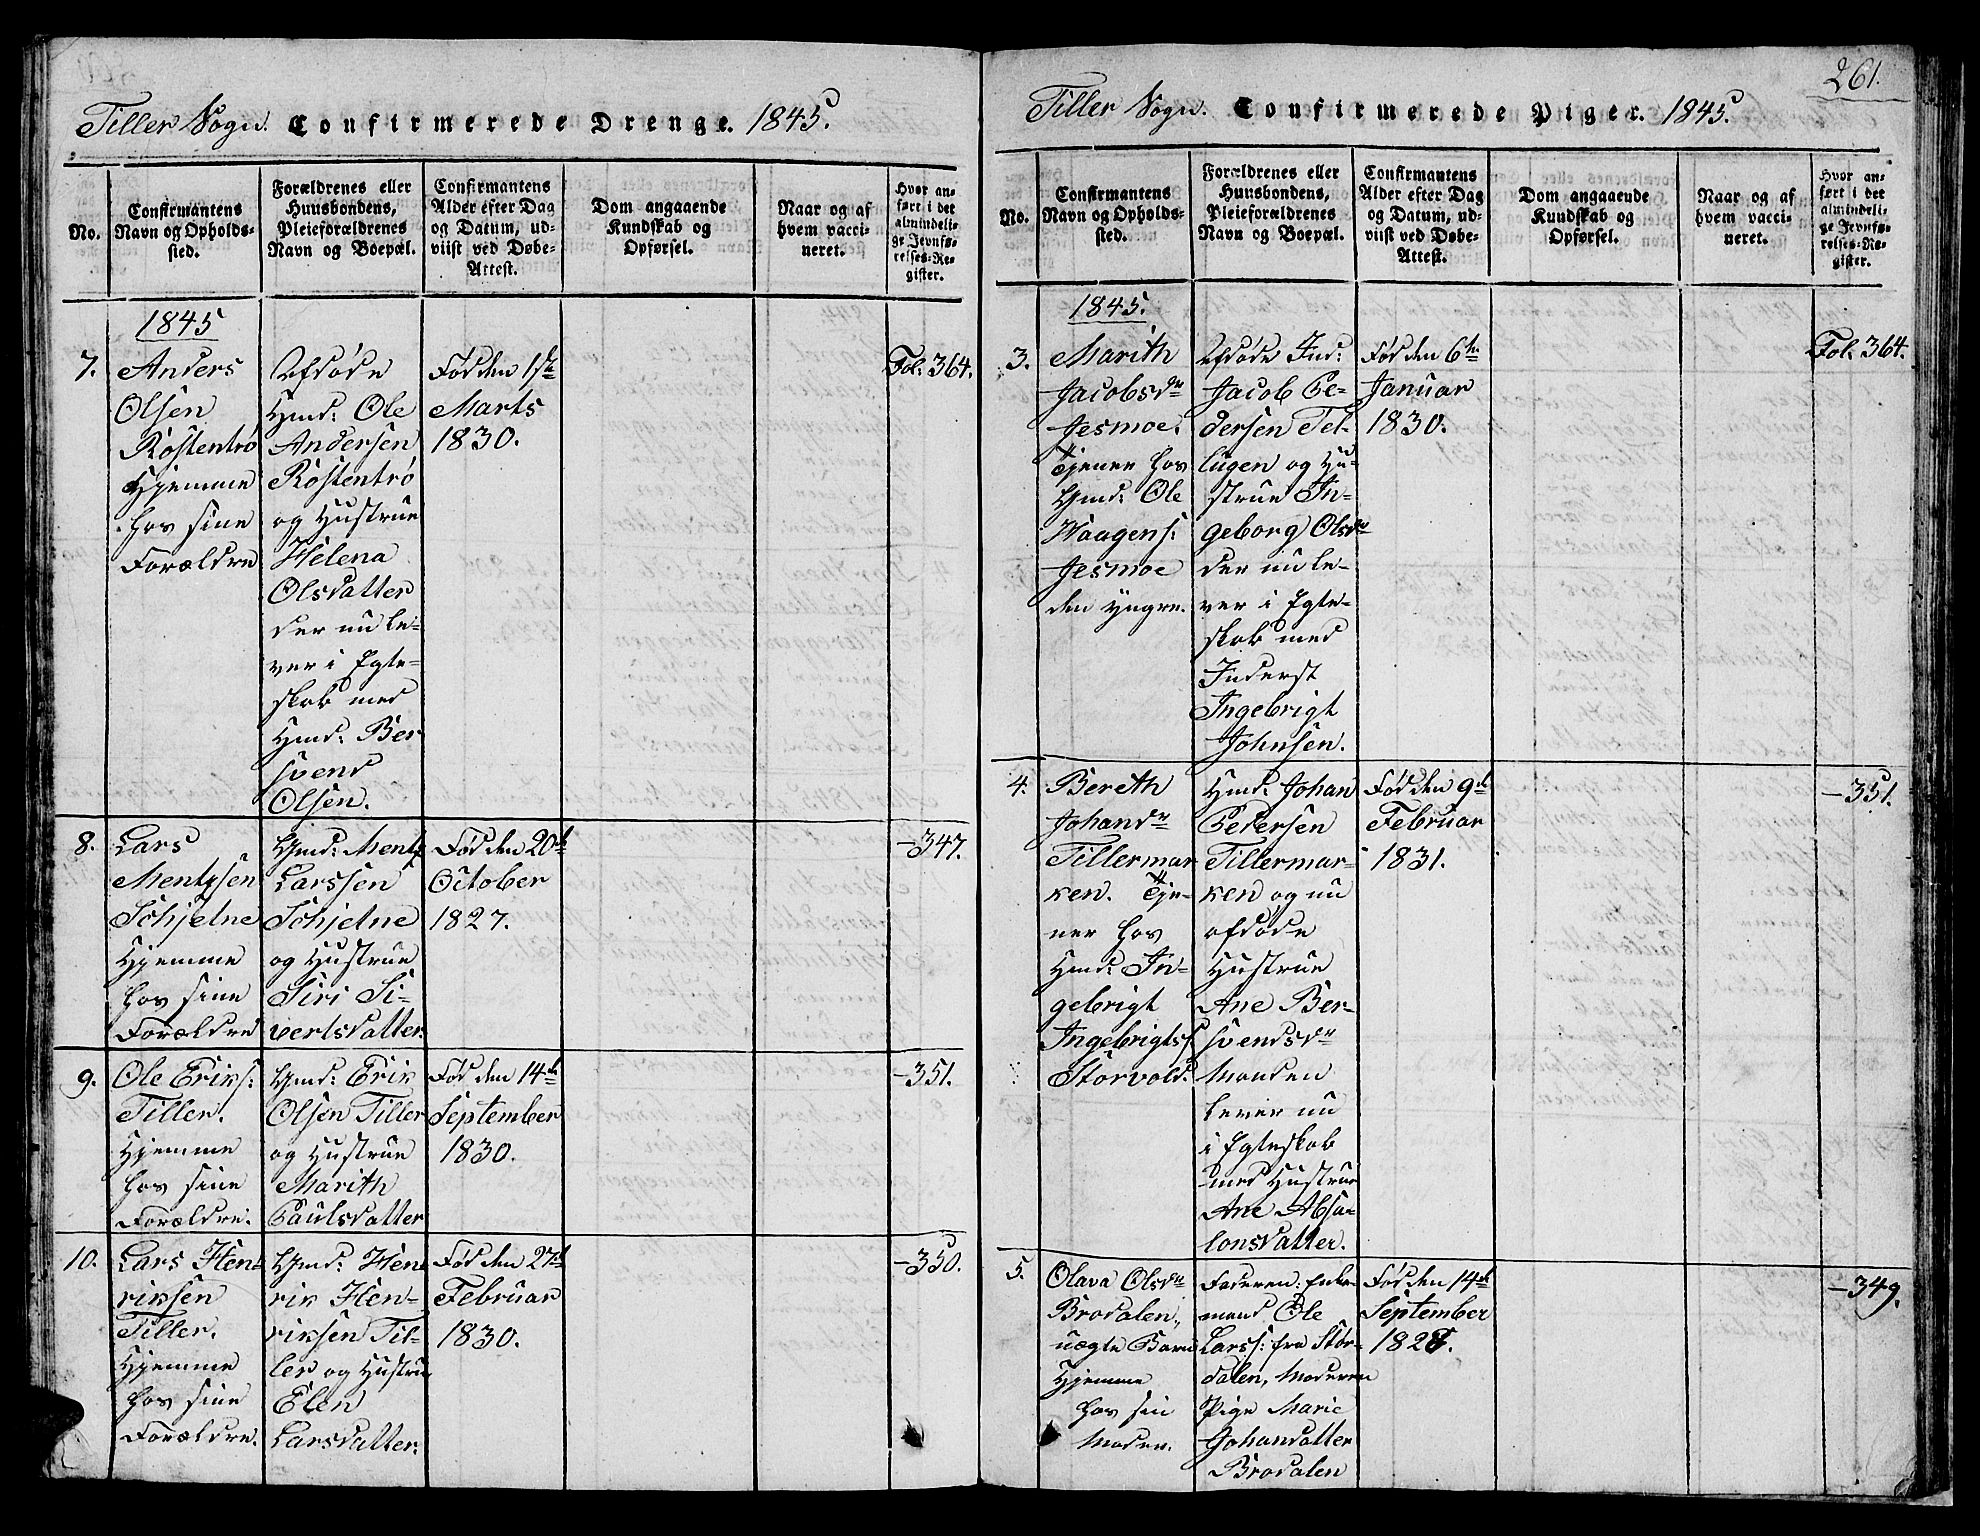 Tiller Sogn. Confirmerede Drenge. 1845.
No.
Confirmantens
Navn og Opholds-
sted.
Forældrenes eller
Huusbondens,
Pleieforældrenes
Navn og Boepæl.
Confirmantens
Alder efter Dag
og Datum, ud-
viist ved Døbe-
Attest.
Dom angaaende
Kundskab og
Opførsel.
Naar og af
hvem vacci-
neret.
Hvor an-
ført i det
almindeli-
ge Jevnfø-
relses-Re-
gister.
1845
7.
Anders
Olsen
Røstentrø
Hjemme
hos sine
Forældre
Afdøde
Hmd: Ole
Andersen
Røstentrø
og Hustrue
Helena
Olsdatter
der nu le-
ver i Egte-
skab med
Hmd: Ber
svend
Olsen.
Fød den 1ste
Marts
1830.
Fol. 364.
8.
Lars
Mentzsen
Schjelne
Hjemme
hos sine
Forældre
Gmd: Mentz
Larssen
Schjelne
og Hustrue
Siri Si-
vertsdatter.
Fød den 20de
October
1827.
-347.
9.
Ole Eriks:
Tiller.
Hjemme
hos sine
Forældre.
Gmd: Erik
Olsen Tiller
og Hustrue
Marith
Paulsdatter
Fød den 14de
September
1830.
-351.
10.
Lars Hen-
riksen
Tiller.
Hjemme
hos sine
Forældre.
Gmd: Hen
rik Hen-
riksen Til-
ler og Hustru
Elen
Larsdatter.
Fød den 27de
Februar
1830.
-350.
261.
Tiller Sogn. Confirmerede Piger. 1845.
No.
Confirmantens
Navn og Opholds-
sted.
Forældrenes eller
Huusbondens,
Pleieforældrenes
Navn og Boepæl.
Confirmantens
Alder efter Dag
og Datum, ud-
viist ved Døbe-
Attest.
Dom angaaende
Kundskab og
Opførsel.
Naar og af
hvem vacci-
neret.
Hvor an-
ført i det
almindeli-
ge Jevnfø-
relses-Re-
gister.
1845.
3.
Marith
Jacobsdr
Jesmoe.
Tjener hos
Gmd: Ole
Haagens:
Jesmoe
den yngre.
Afdøde Ind:
Jacob Pe-
dersen Tel-
lugen og Hu-
strue In-
geborg Olsdr
der nu le-
ver i Egte-
skab med
Inderst
Ingebrigt
Johnsen.
Fød den 6te
Januar
1830.
Fol. 364.
4.
Bereth
Johandr
Tillermar
ken. Tje-
ner hos
Hmd: In-
gebrigt
Ingebrigtss:
Storvold.
Hmd: Johan
Pedersen
Tillermar-
ken og nu
afdøde
Hustrue
Ane Ber-
svendsdr
Manden
lever nu
i Egteskab
med Hustrue
Ane Absa-
lonsdatter.
Fød den 9de
Februar
1831.
-351.
5.
Olava Olsdr
Brodalen,
uægte Barn
Hjemme
hos sin
Moder.
Faderen: Enke-
mand Ole
Larss: fra Stor-
dalen, Moderen
Pige Marie
Johandatter
Brodalen
Fød den 14de
September
1828.
-349.